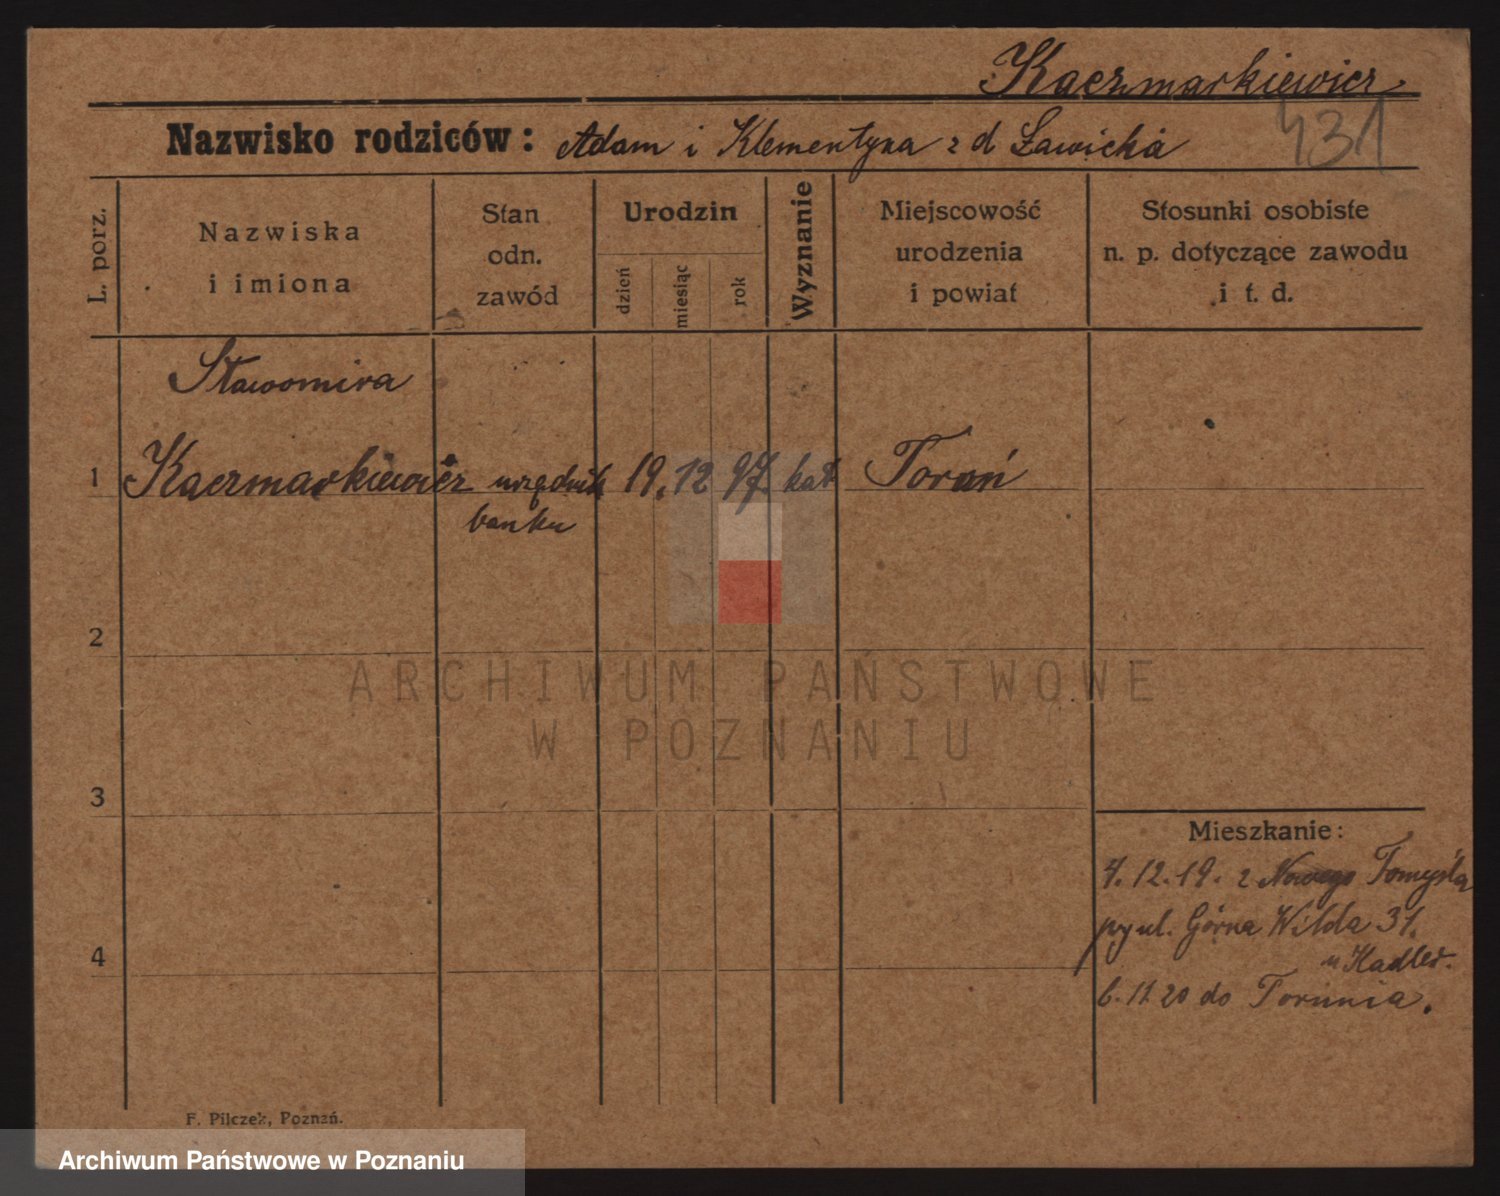 Kaczmarkiewicz
Nazwisko rodziców: Adam i Klementyna z d Ławicka
431
L. porz.
Nazwiska
i imiona
Stan
odn.
zawód
Urodzin
dzień
miesiąc
rok
Wyznanie
Miejscowość
urodzenia
i powiat
Stosunki osobiste
n. p. dotyczące zawodu
i t. d.
Sławomira
1 Kaczmarkiewicz urzędnik 19. 12 97. kat Toruń
banku
2
ARCHIWUM PAŃSTWOWE
W POZNANIU
3
Mieszkanie:
4. 12. 19. z Nowego Tomyśla
ul. Górna Wilda 31.
u
4
6. 11 20 do Torunia.
F. Pilczek, Poznań.
Archiwum Państwowe w Poznaniu